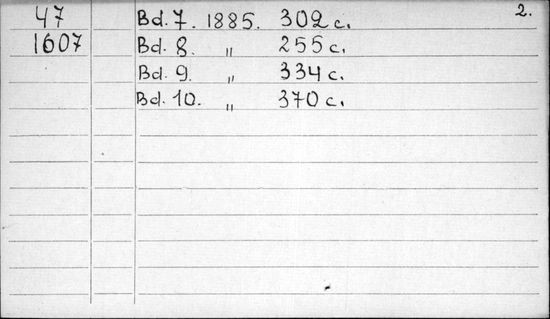 2.
47 Bd. 7. 1885. 302 c.
1607 Bd. 8. „ 255 c.
Bd. 9. „ 334 c.
Bd. 10. „ 370 c.